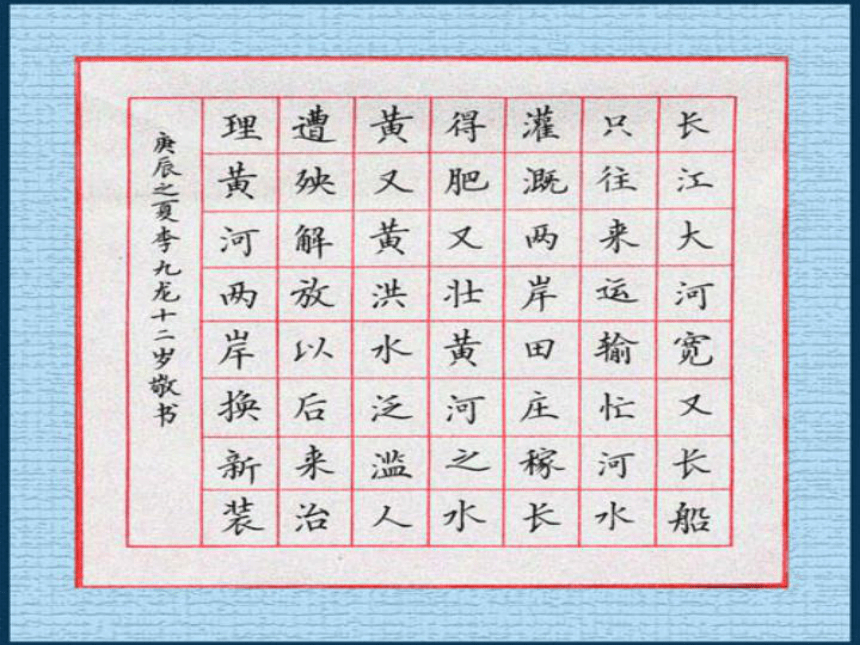 长江大河宽又长船
只往来运输忙河水
灌溉两岸田庄稼长
得肥又壮黄河之水
黄又黄洪水泛滥人
遭殃解放以后来治
理黄河两岸换新装
庚辰之夏李九龙十二岁敬书